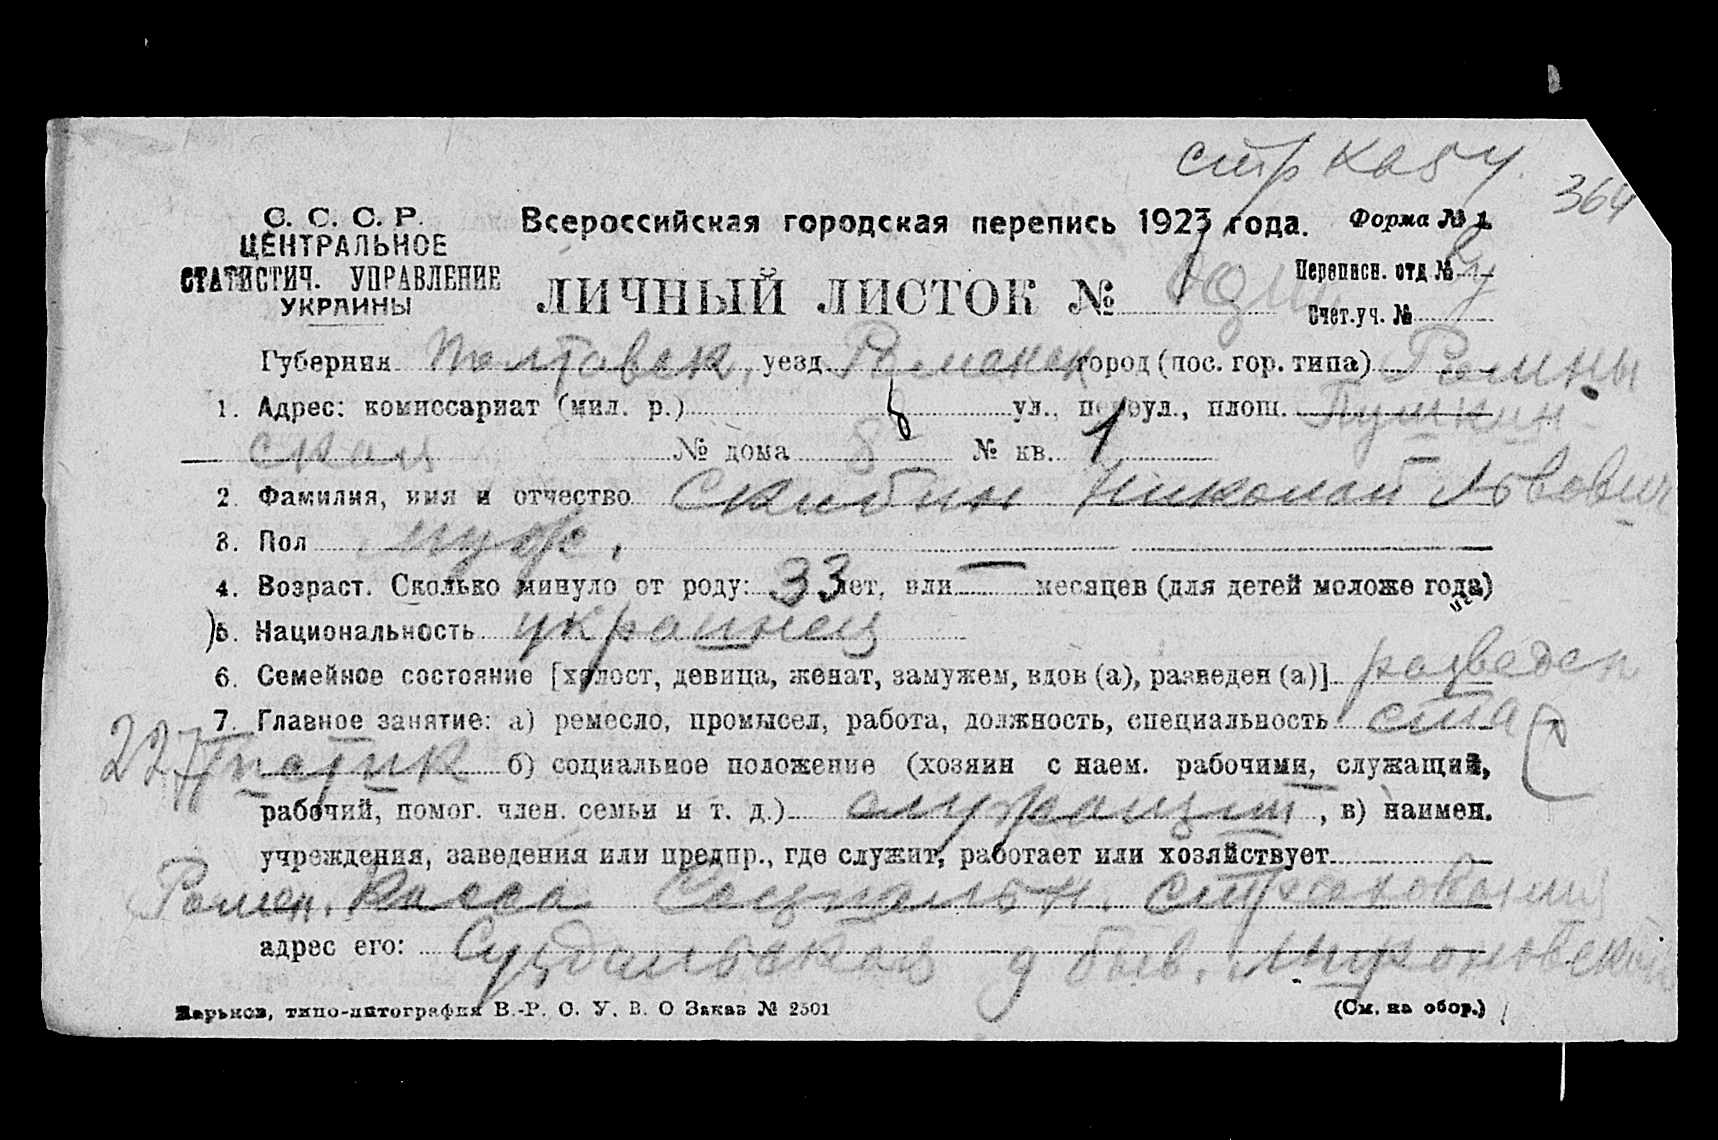 стр касу.
364
С. С. С. Р.
ЦЕНТРАЛЬНОЕ
СТАТИСТИЧ. УПРАВЛЕНИЕ
УКРАИНЫ
Всероссийская городская перепись 1923 года.
Форма № 1.
ЛИЧНЫЙ ЛИСТОК №
Переписн. отд №
Счет.-уч. №
Губерния Полтавск, уезд Роменск город (пос. гор. типа) Ромны
1. Адрес: комиссариат (мил. р.) ул., переул., площ. Пушкин-
ская № дома 8 № кв. 1
2. Фамилия, имя и отчество Скибин Николай Львович
3. Пол муж.
4. Возраст. Сколько минуло от роду: 33 лет, или — месяцев (для детей моложе года)
5. Национальность украинец
6. Семейное состояние [холост, девица, женат, замужем, вдов (а), разведен (а)] разведен
7. Главное занятие: а) ремесло, промысел, работа, должность, специальность ста
227 тистик б) социальное положение (хозяин с наем. рабочими, служащий,
рабочий, помог. член. семьи и т. д.) служащий, в) наимен.
учреждения, заведения или предпр., где служит, работает или хозяйствует
Ромен. Касса Социальн. страхования
адрес его: Суздальская д быв. Мироновской
Харьков, типо-литография В.-Р. О. У. В. О Заказ № 2501
(См. на обор.)